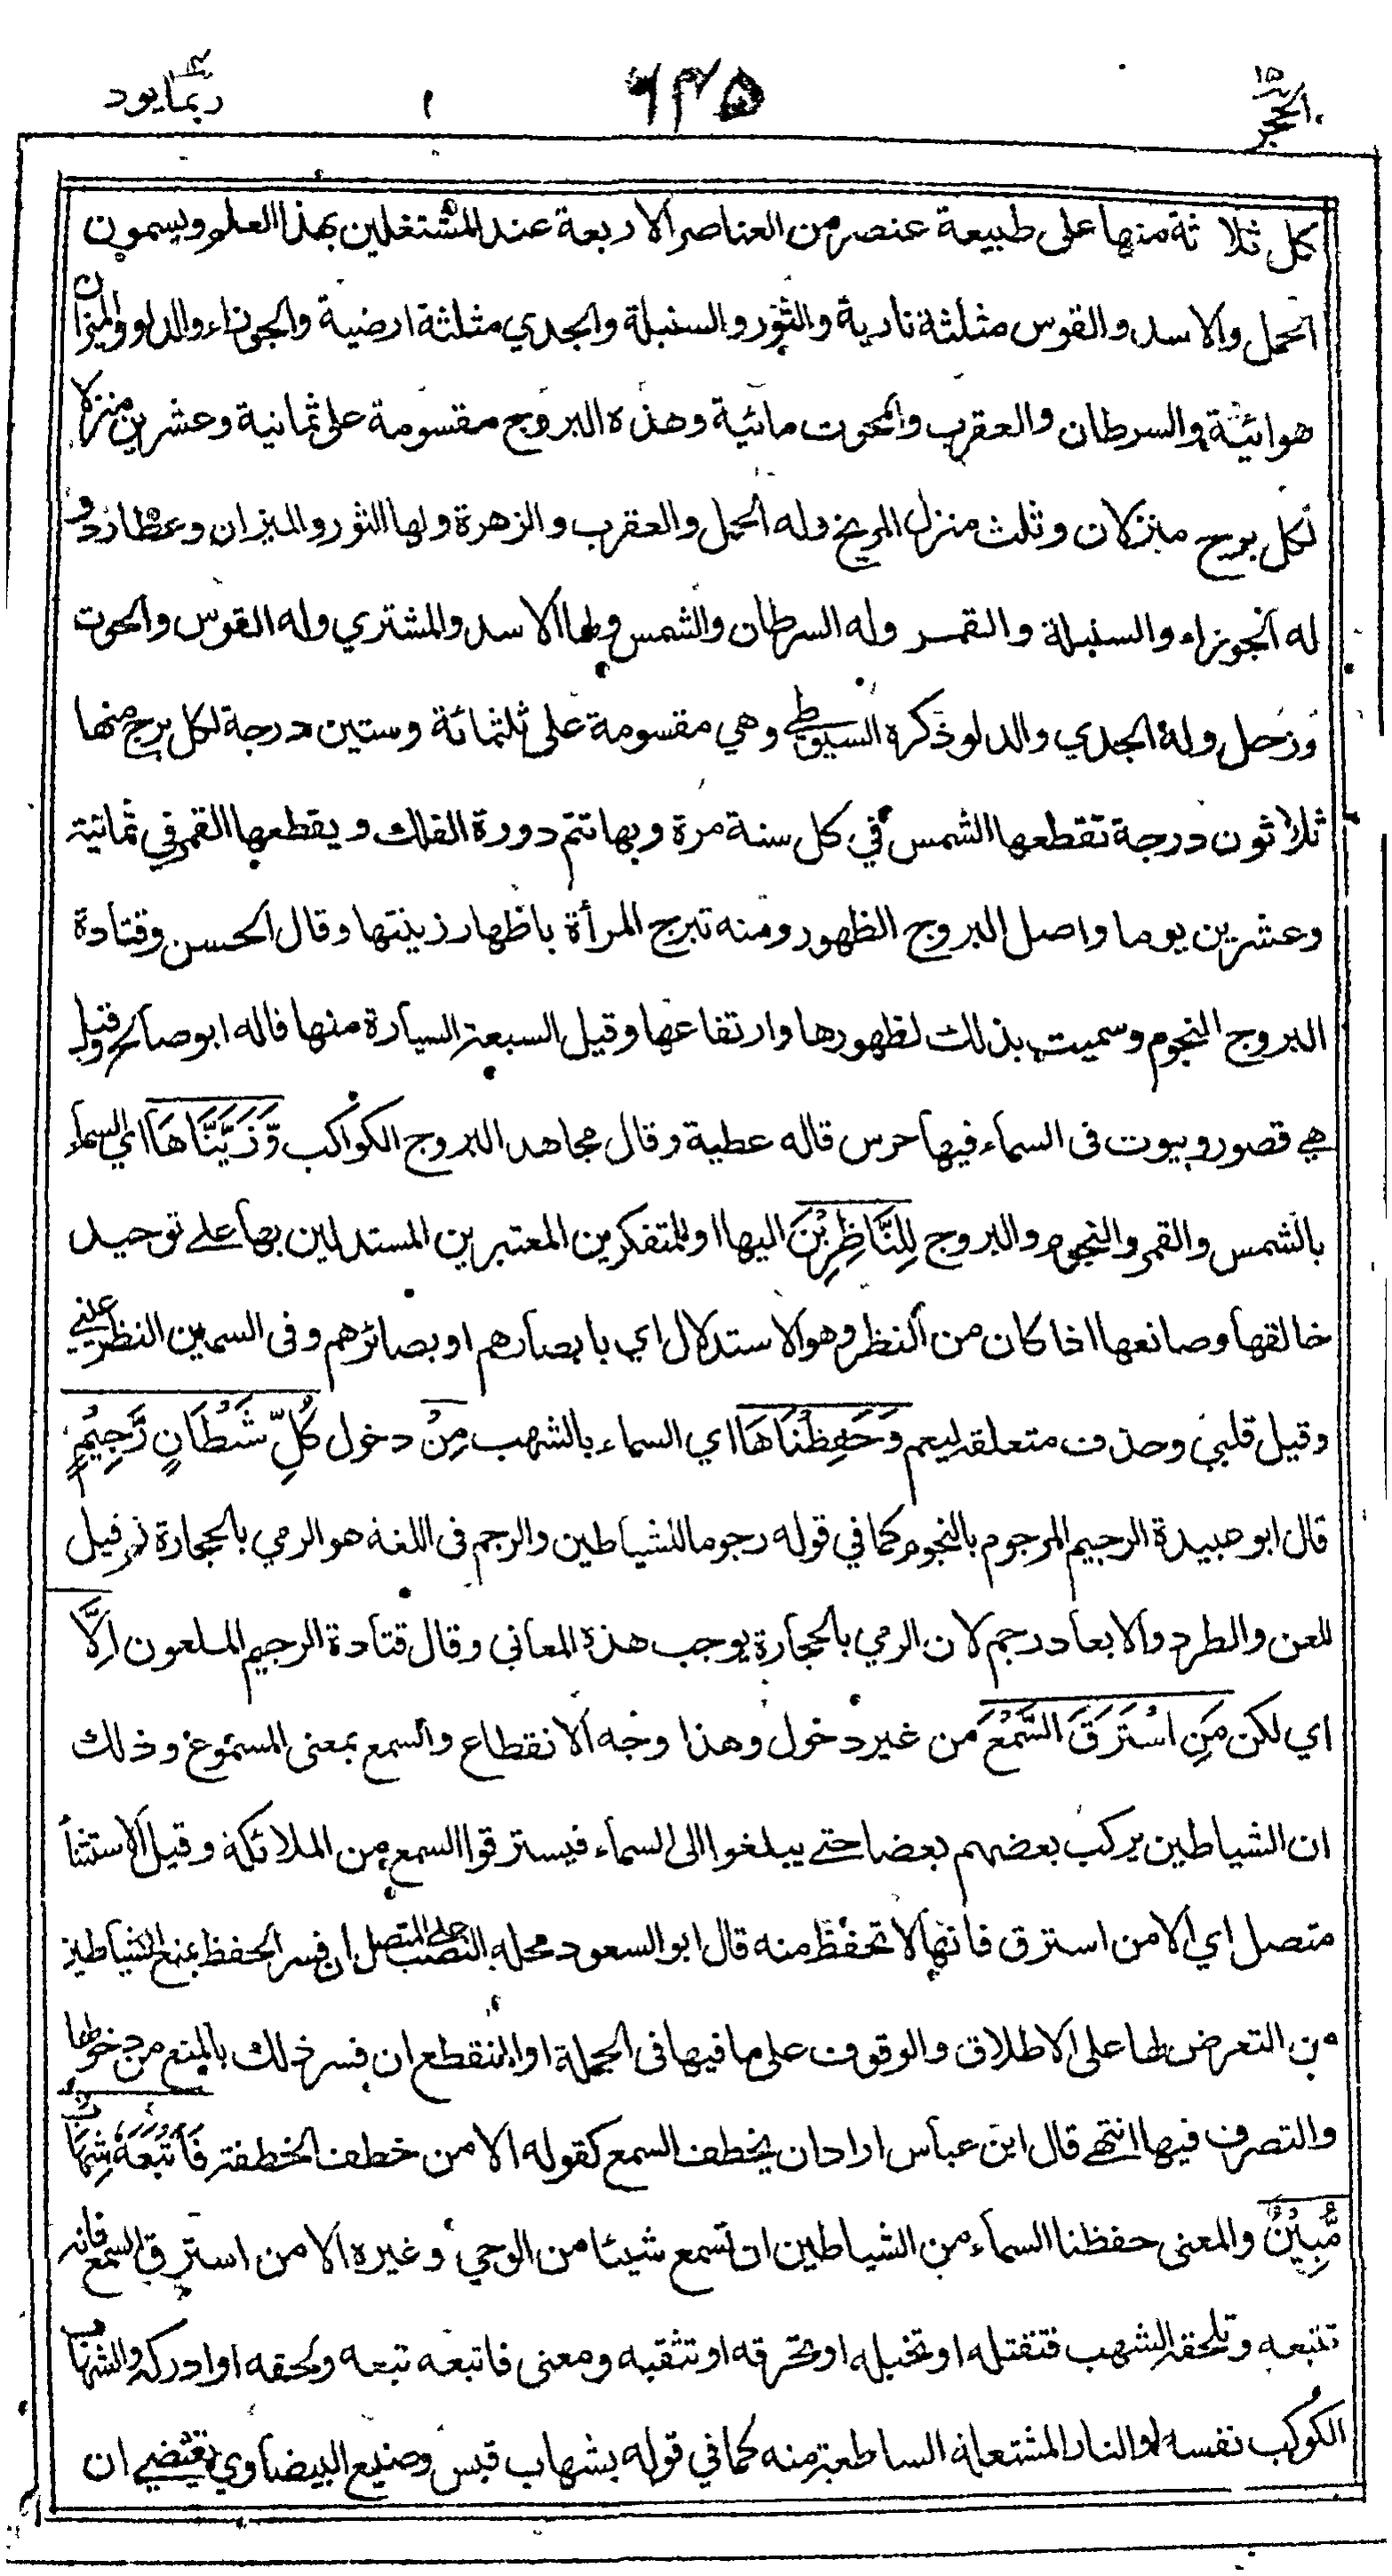 الحجر ١٥
٦٣٥
ربما يود ١٤
كل ثلاثة منها على طبيعة عنصر من العناصر الاربعة عند المشتغلين بهذا العلم ويسمون
الحمل والاسد والقوس مثلثة نارية والثور والسنبلة والجدي مثلثة ارضية والجوزاء والدلو والميزان
هوائية والسرطان والعقرب والحوت مائية وهذه البروج مقسومة على ثمانية وعشرين منزلا
لكل برج منزلان وثلث منزل المريخ وله الحمل والعقرب والزهرة ولها الثور والميزان وعطارد و
له الجوزاء والسنبلة والقمر وله السرطان والشمس ولها الاسد والمشتري وله القوس والحوت
وزحل وله الجدي والدلو ذكره السيوطي وهي مقسومة على ثلثمائة وستين درجة لكل برج منها
ثلاثون درجة تقطعها الشمس في كل سنة مرة وبها تتم دورة الفلك ويقطعها القمر في ثمانية
وعشرين يوما واصل البروج الظهور ومنه تبرج المرأة باظهار زينتها وقال الحسن وقتادة
البروج النجوم وسميت بذلك لظهورها وارتفاعها وقيل السبعة السيارة منها قاله ابو صالح وقيل
هي قصور وبيوت فى السماء فيها حرس قاله عطية وقال مجاهد البروج الكواكب وَّزَيَّنَّاهَا اي السماء
بالشمس والقمر والنجوم والبروج لِلنَّاظِرِيْنَ اليها او للمتفكرين المعتبرين المستدلين بها على توحيد
خالقها وصانعها اذا كان من النظر وهو الاستدلال اي بابصارهم او بصائرهم وفى السمين النظر عيني
وقيل قلبي وحذف متعلقه ليعم وَحَفِظْنَاهَا اي السماء بالشهب مِنْ دخول كُلِّ شَيْطَانٍ رَّجِيْمٍ
قال ابو عبيدة الرجيم المرجوم بالنجوم كما في قوله رجوما للشياطين والرجم فى اللغة هو الرمي بالحجارة ثم قيل
للعن والطرد والابعاد رجم لان الرمي بالحجارة يوجب هذه المعاني وقال قتادة الرجيم الملعون اِلَّا
اي لكن مَنِ اسْتَرَقَ السَّمْعَ من غير دخول وهذا وجه الانقطاع والسمع بمعنى المسموع وذلك
ان الشياطين يركب بعضهم بعضا حتى يبلغوا الى السماء فيسترقوا السمع من الملائكة وقيل الاستثناء
متصل اي الا من استرق فانها لا تحفظ منه قال ابو السعود محله النصب على المتصل ان فسر الحفظ بمنع الشياطين
من التعرض لها على الاطلاق والوقوف على ما فيها فى الجملة او المنقطع ان فسر ذلك بالمنع من دخولها
والتصرف فيها انتهى قال ابن عباس اراد ان يخطف السمع كقوله الا من خطف الخطفة فَاَتْبَعَهٗ شِهَابٌ
مُّبِيْنٌ والمعنى حفظنا السماء من الشياطين ان تسمع شيئا من الوحي وغيره الا من استرق السمع فانه
تتبعه وتلحقه الشهب فتقتله او تخبله او تحرقه او تثقبه ومعنى فاتبعه تبعه ولحقه او ادركه والشهاب
الكوكب نفسه او النار المشتعلة الساطعة منه كما في قوله بشهاب قبس وصنيع البيضاوي يقتضي ان